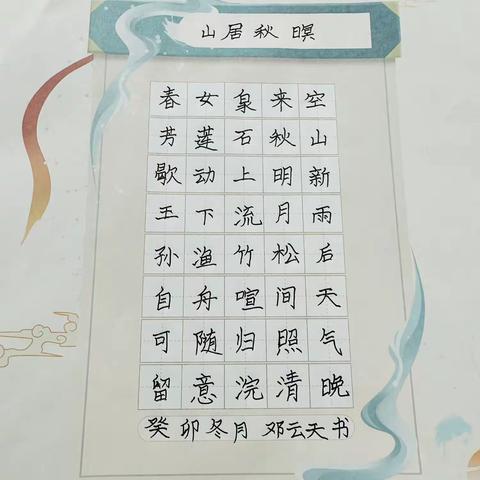 山居秋暝
空山新雨后天气晚
来秋明月松间照清
泉石上流竹喧归浣
女莲动下渔舟随意
春芳歇王孙自可留
癸卯冬月 邓云天书